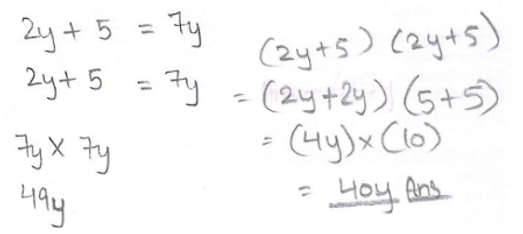 2y + 5 = 7y
2y + 5 = 7y
7y × 7y
49y
(2y+5) (2y+5)
= (2y+2y) (5+5)
= (4y)×(10)
= 40y Ans